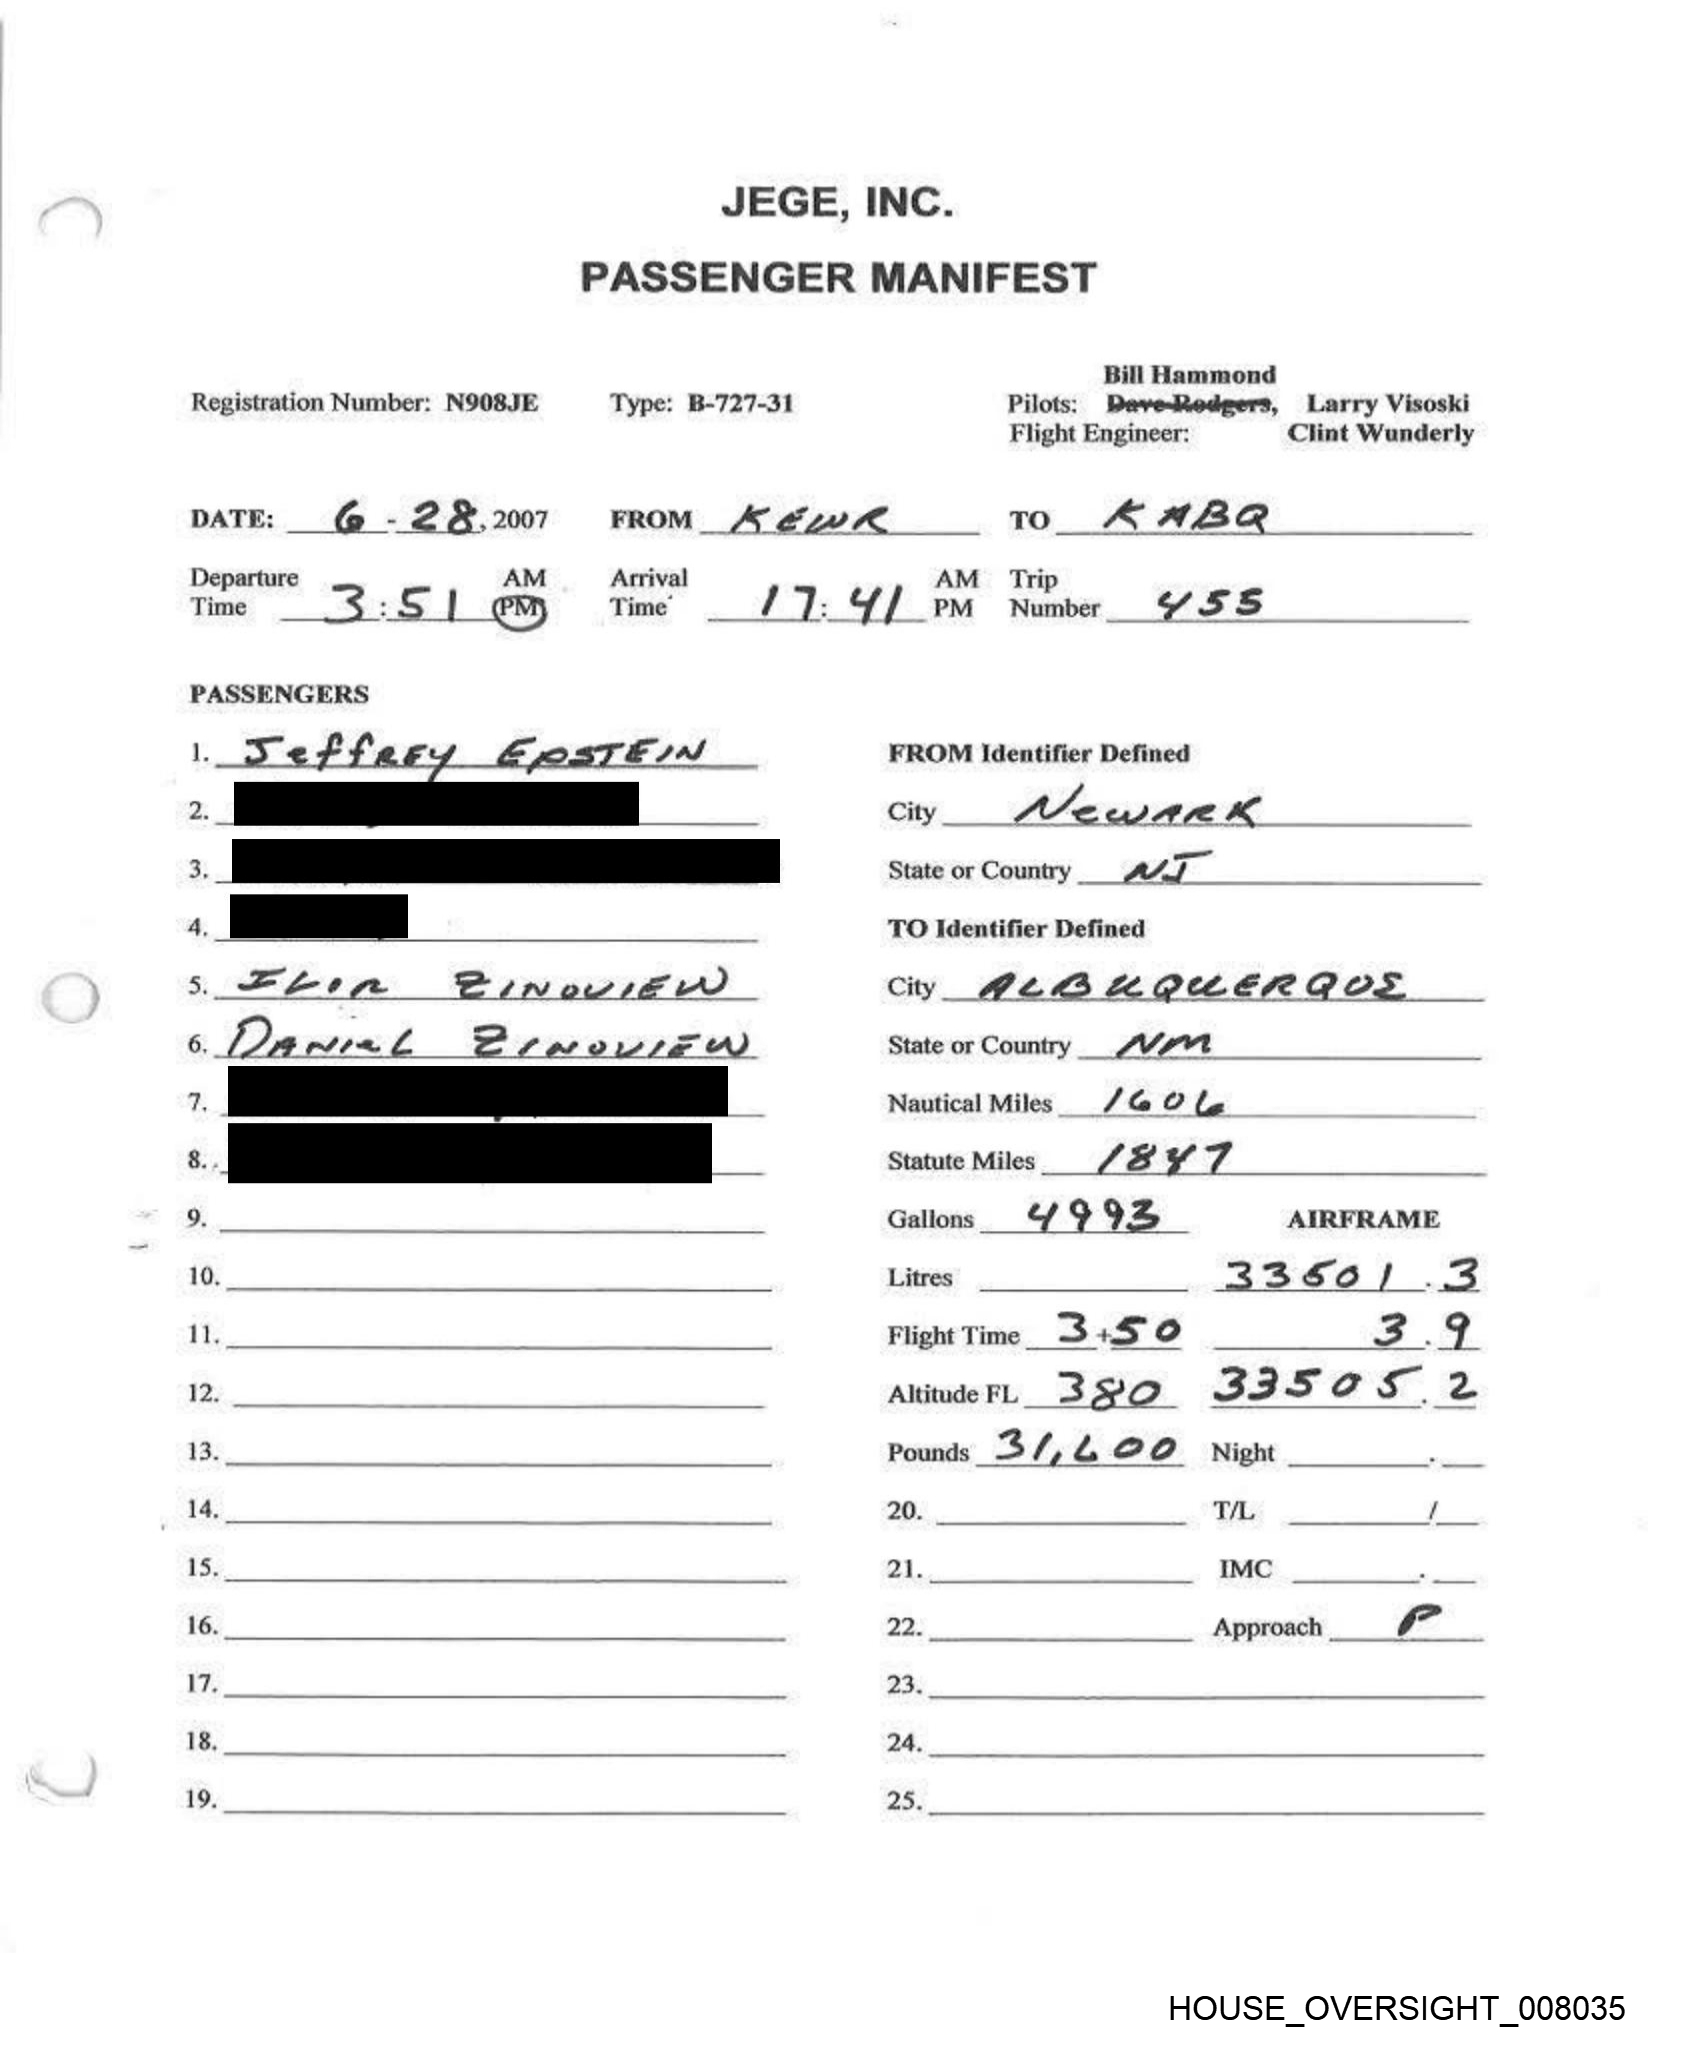 JEGE, INC.
PASSENGER MANIFEST
Bill Hammond
Registration Number: N908JE Type: B-727-31 Pilots: Dave Rodgers, Larry Visoski
Flight Engineer: Clint Wunderly
DATE: 6 - 28, 2007 FROM KEWR TO KABQ
Departure Time 3:51 AM PM Arrival Time 17:41 AM PM Trip Number 455
PASSENGERS
1. Jeffrey EPSTEIN
2.
3.
4.
5. IGOR ZINOVIEW
6. DANIEL ZINOVIEW
7.
8.
9.
10.
11.
12.
13.
14.
15.
16.
17.
18.
19.
FROM Identifier Defined
City NEWARK
State or Country NJ
TO Identifier Defined
City ALBUQUERQUE
State or Country NM
Nautical Miles 1606
Statute Miles 1847
Gallons 4993 AIRFRAME
Litres 33501.3
Flight Time 3+50 3.9
Altitude FL 380 33505.2
Pounds 31,600 Night .
20. T/L /
21. IMC .
22. Approach P
23.
24.
25.
HOUSE_OVERSIGHT_008035